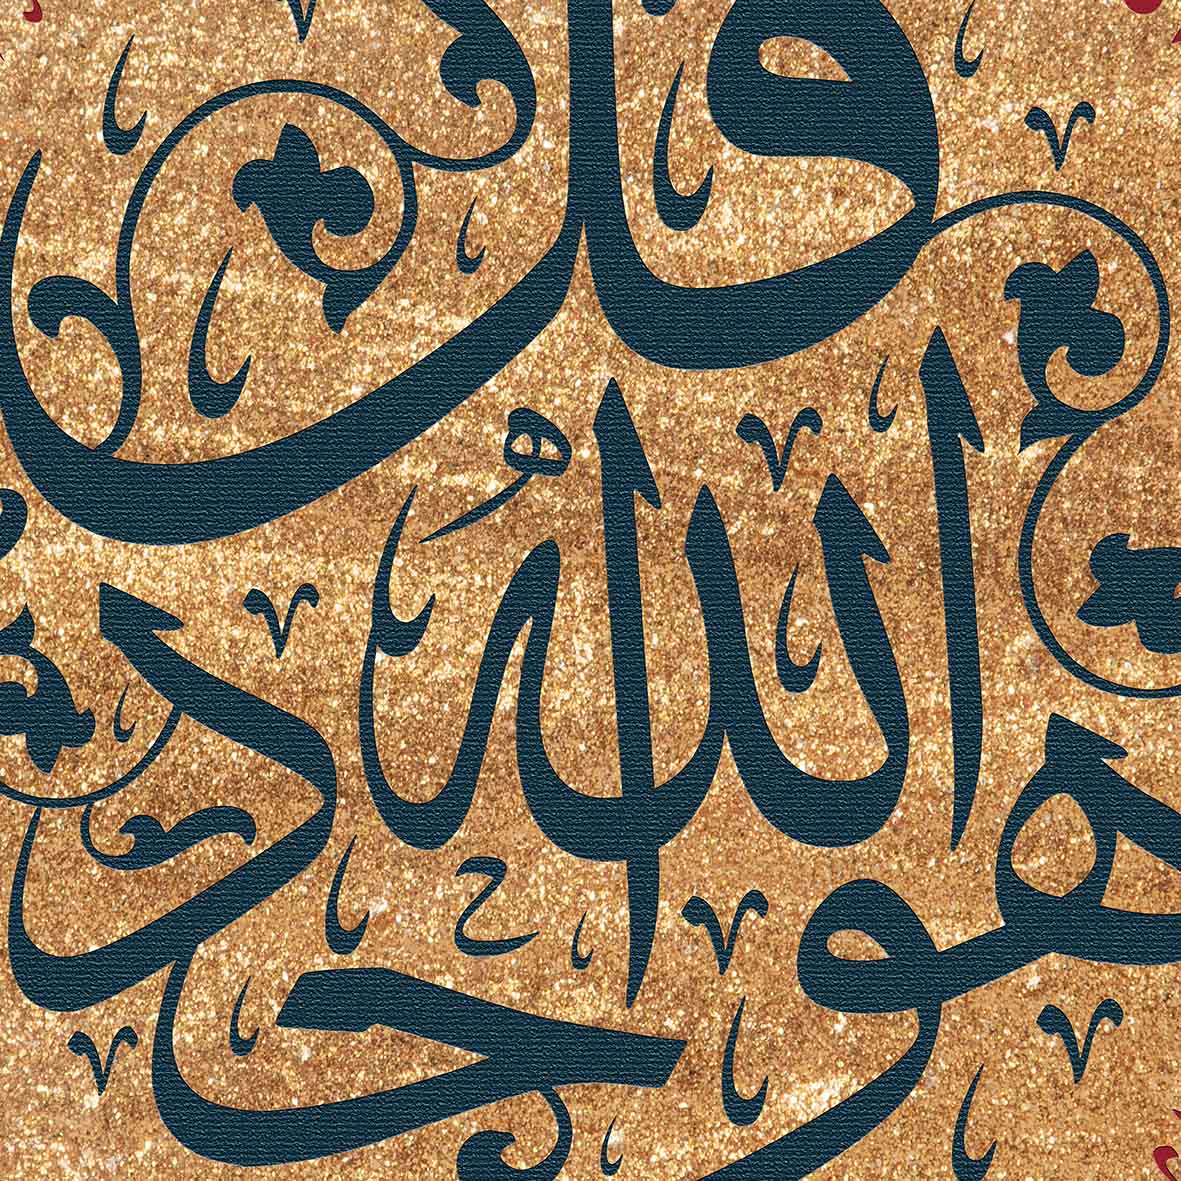 قل
هو الله احد